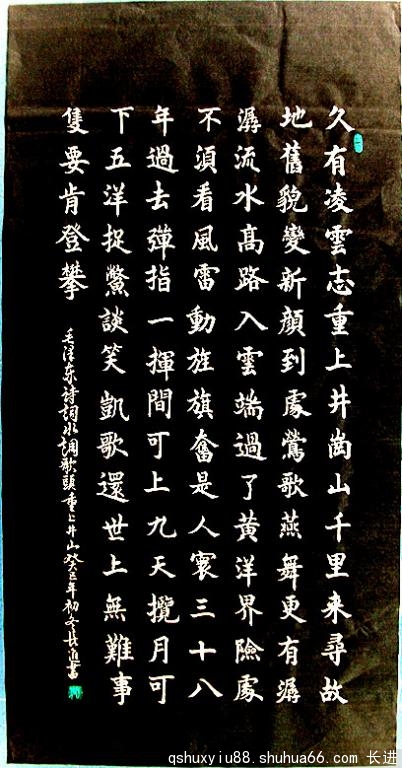 久有凌雲志重上井崗山千里來尋故
地舊貌變新顔到處鶯歌燕舞更有潺
潺流水高路入雲端過了黄洋界險處
不須看風雷動旌旗奮是人寰三十八
年過去彈指一揮間可上九天攬月可
下五洋捉鱉談笑凱歌還世上無難事
隻要肯登攀
毛泽东诗詞水調歌頭重上井山癸巳年初冬長進書
qshuxyiu88.shuhua66.com 长进